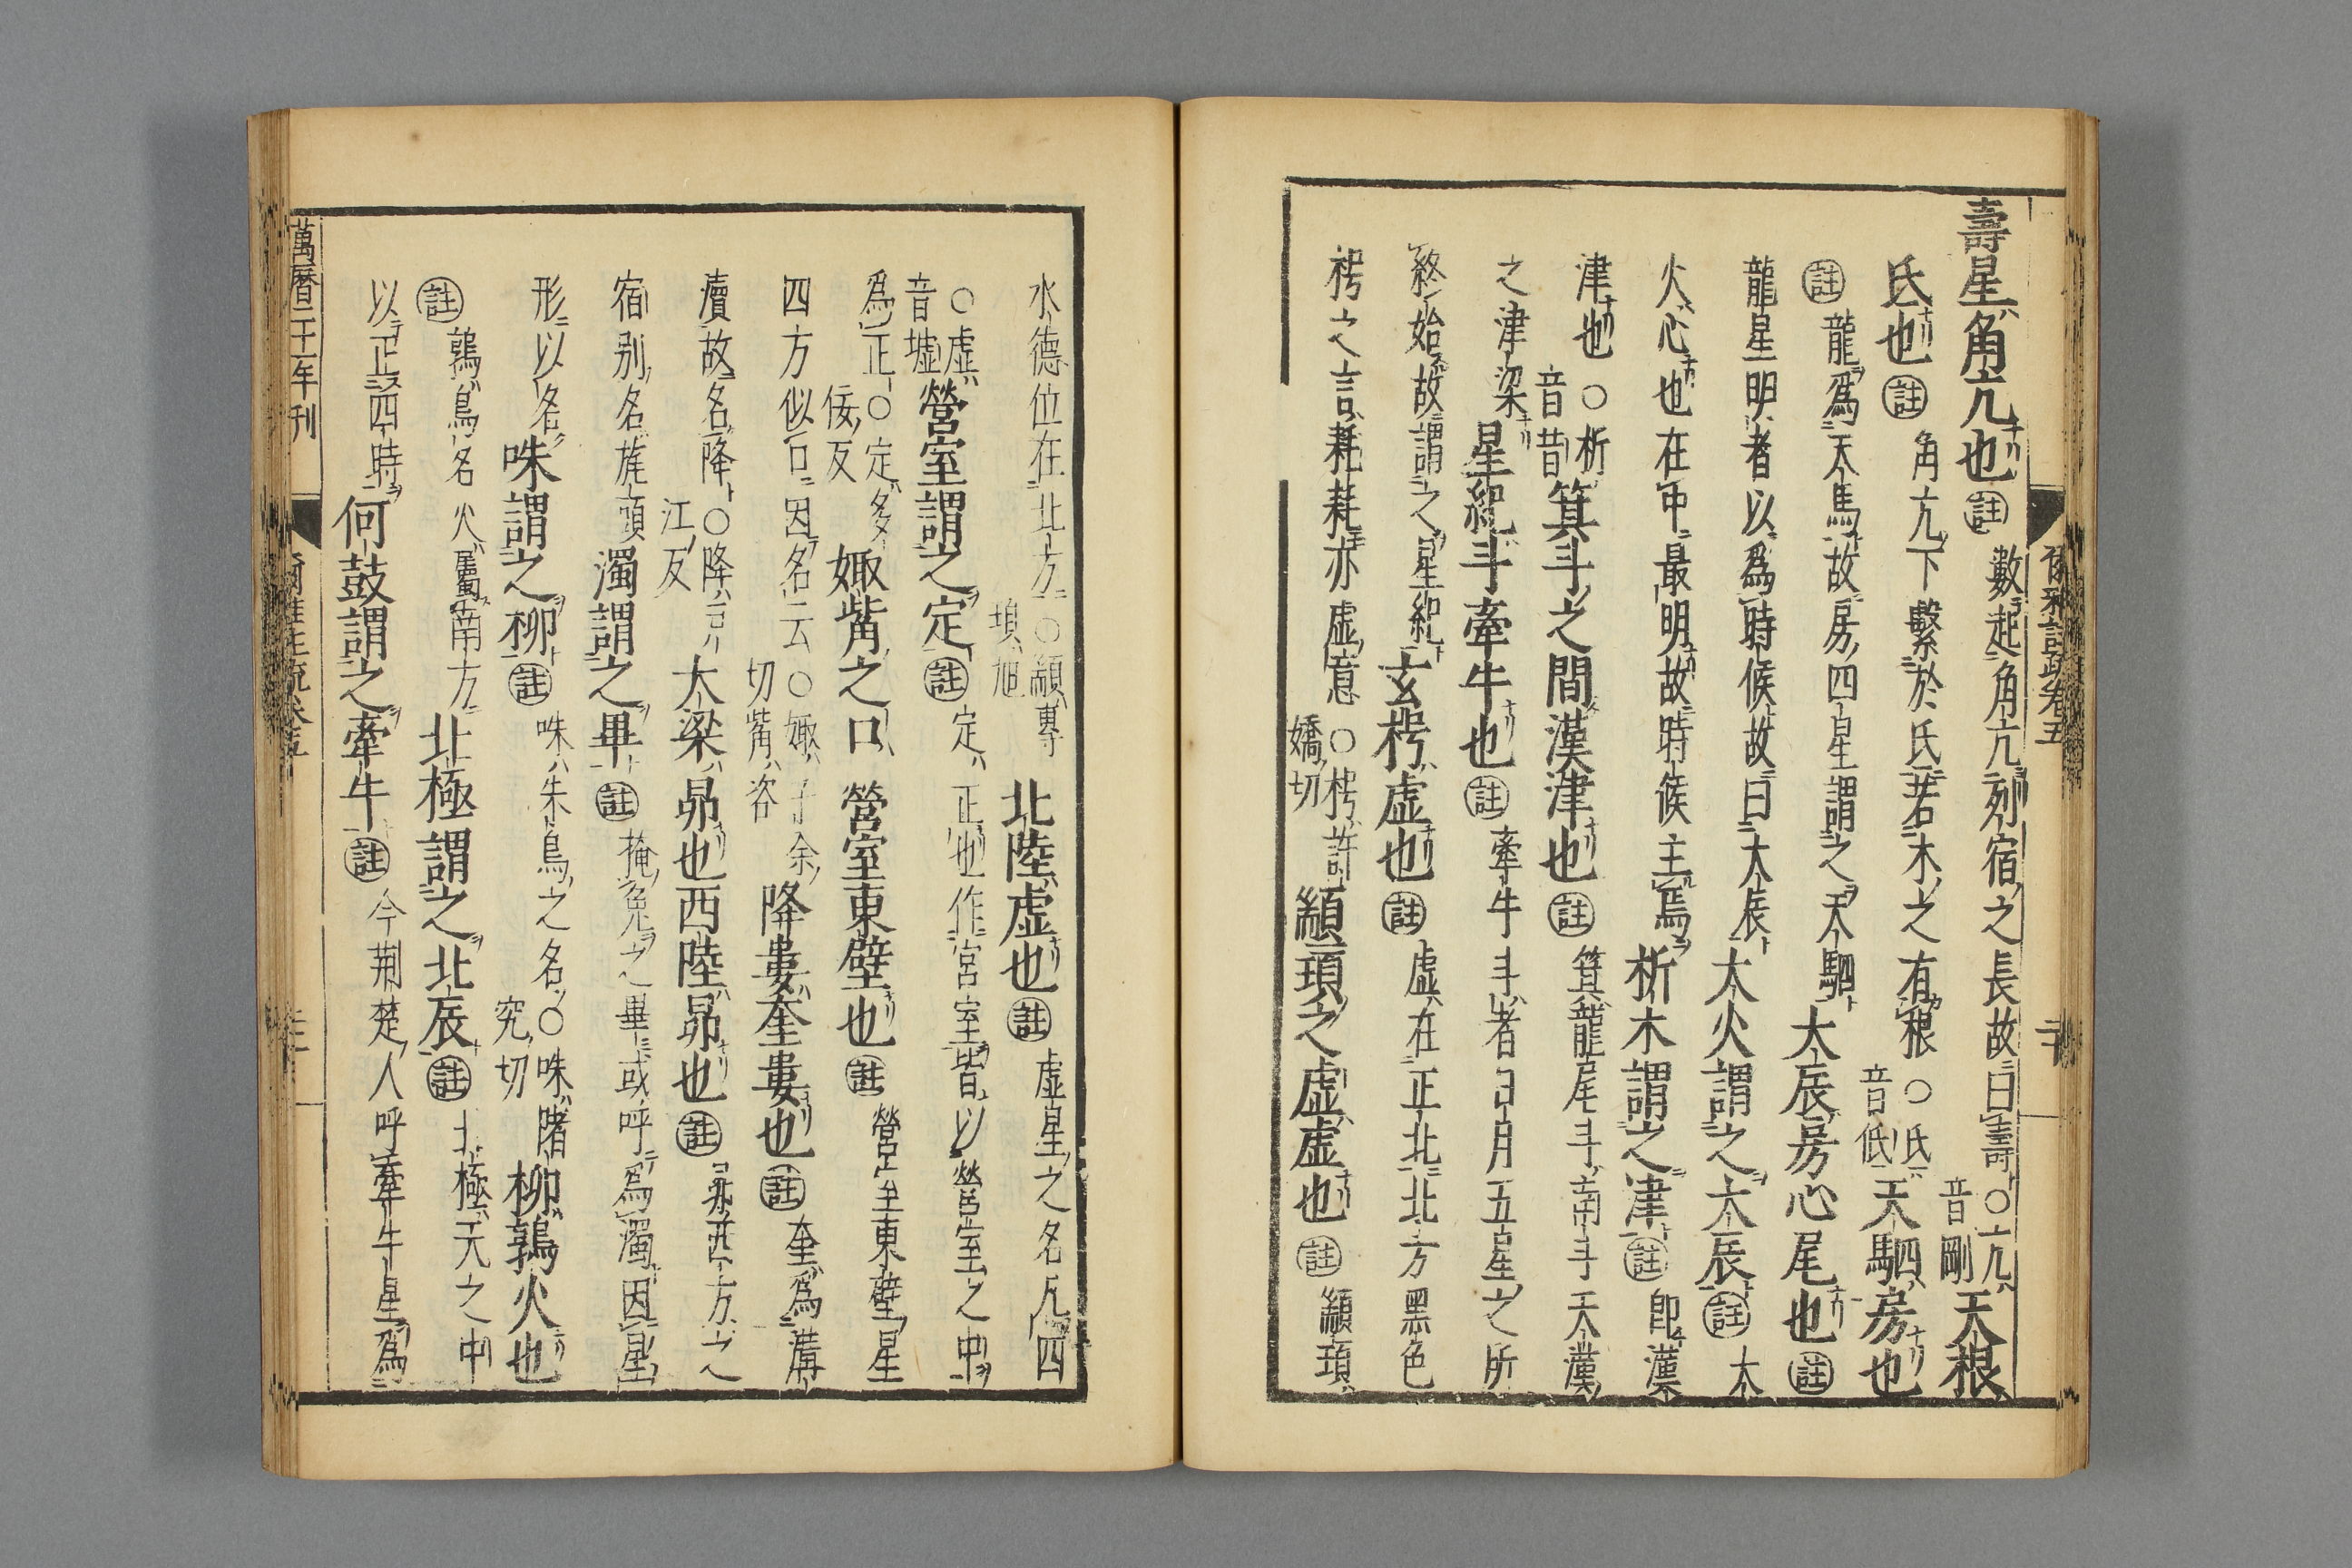 壽星角亢也註數起角亢列宿之長故曰壽○亢音剛天根
氐也註角亢下繫於氐若木之有根○氐音低天駟房也
註龍爲天馬故房四星謂之天駟大辰房心尾也註
龍星明者以爲時候故曰大辰大火謂之大辰註大
火心也在中最明故時候主焉析木謂之津註即漢
津也○析音昔箕斗之間漢津也註箕龍尾斗南斗天漢
之津梁星紀斗牽牛也註牽牛斗者日月五星之所
終始故謂之星紀玄枵虛也註虛在正北北方黑色
枵之言耗耗亦虛意○枵許嬌切顓頊之虛虛也註顓頊
水德位在北方○顓專頊旭北陸虛也註虛星之名凡四
○虛音墟營室謂之定註定正也作宮室皆以營室之中
爲正○定多佞反娵觜之口營室東壁也註營室東壁星
四方似口因名云○娵子余切觜咨降婁奎婁也註奎爲溝
瀆故名降○降戸江反大梁昴也西陸昴也註昴西方之
宿別名旄頭濁謂之畢註掩兔之畢或呼爲濁因星
形以名咮謂之柳註咮朱鳥之名○咮睹究切柳鶉火也
註鶉鳥名火屬南方北極謂之北辰註北極天之中
以正四時何鼓謂之牽牛註今荊楚人呼牽牛星爲
萬曆二十一年刊
爾雅註疏卷五